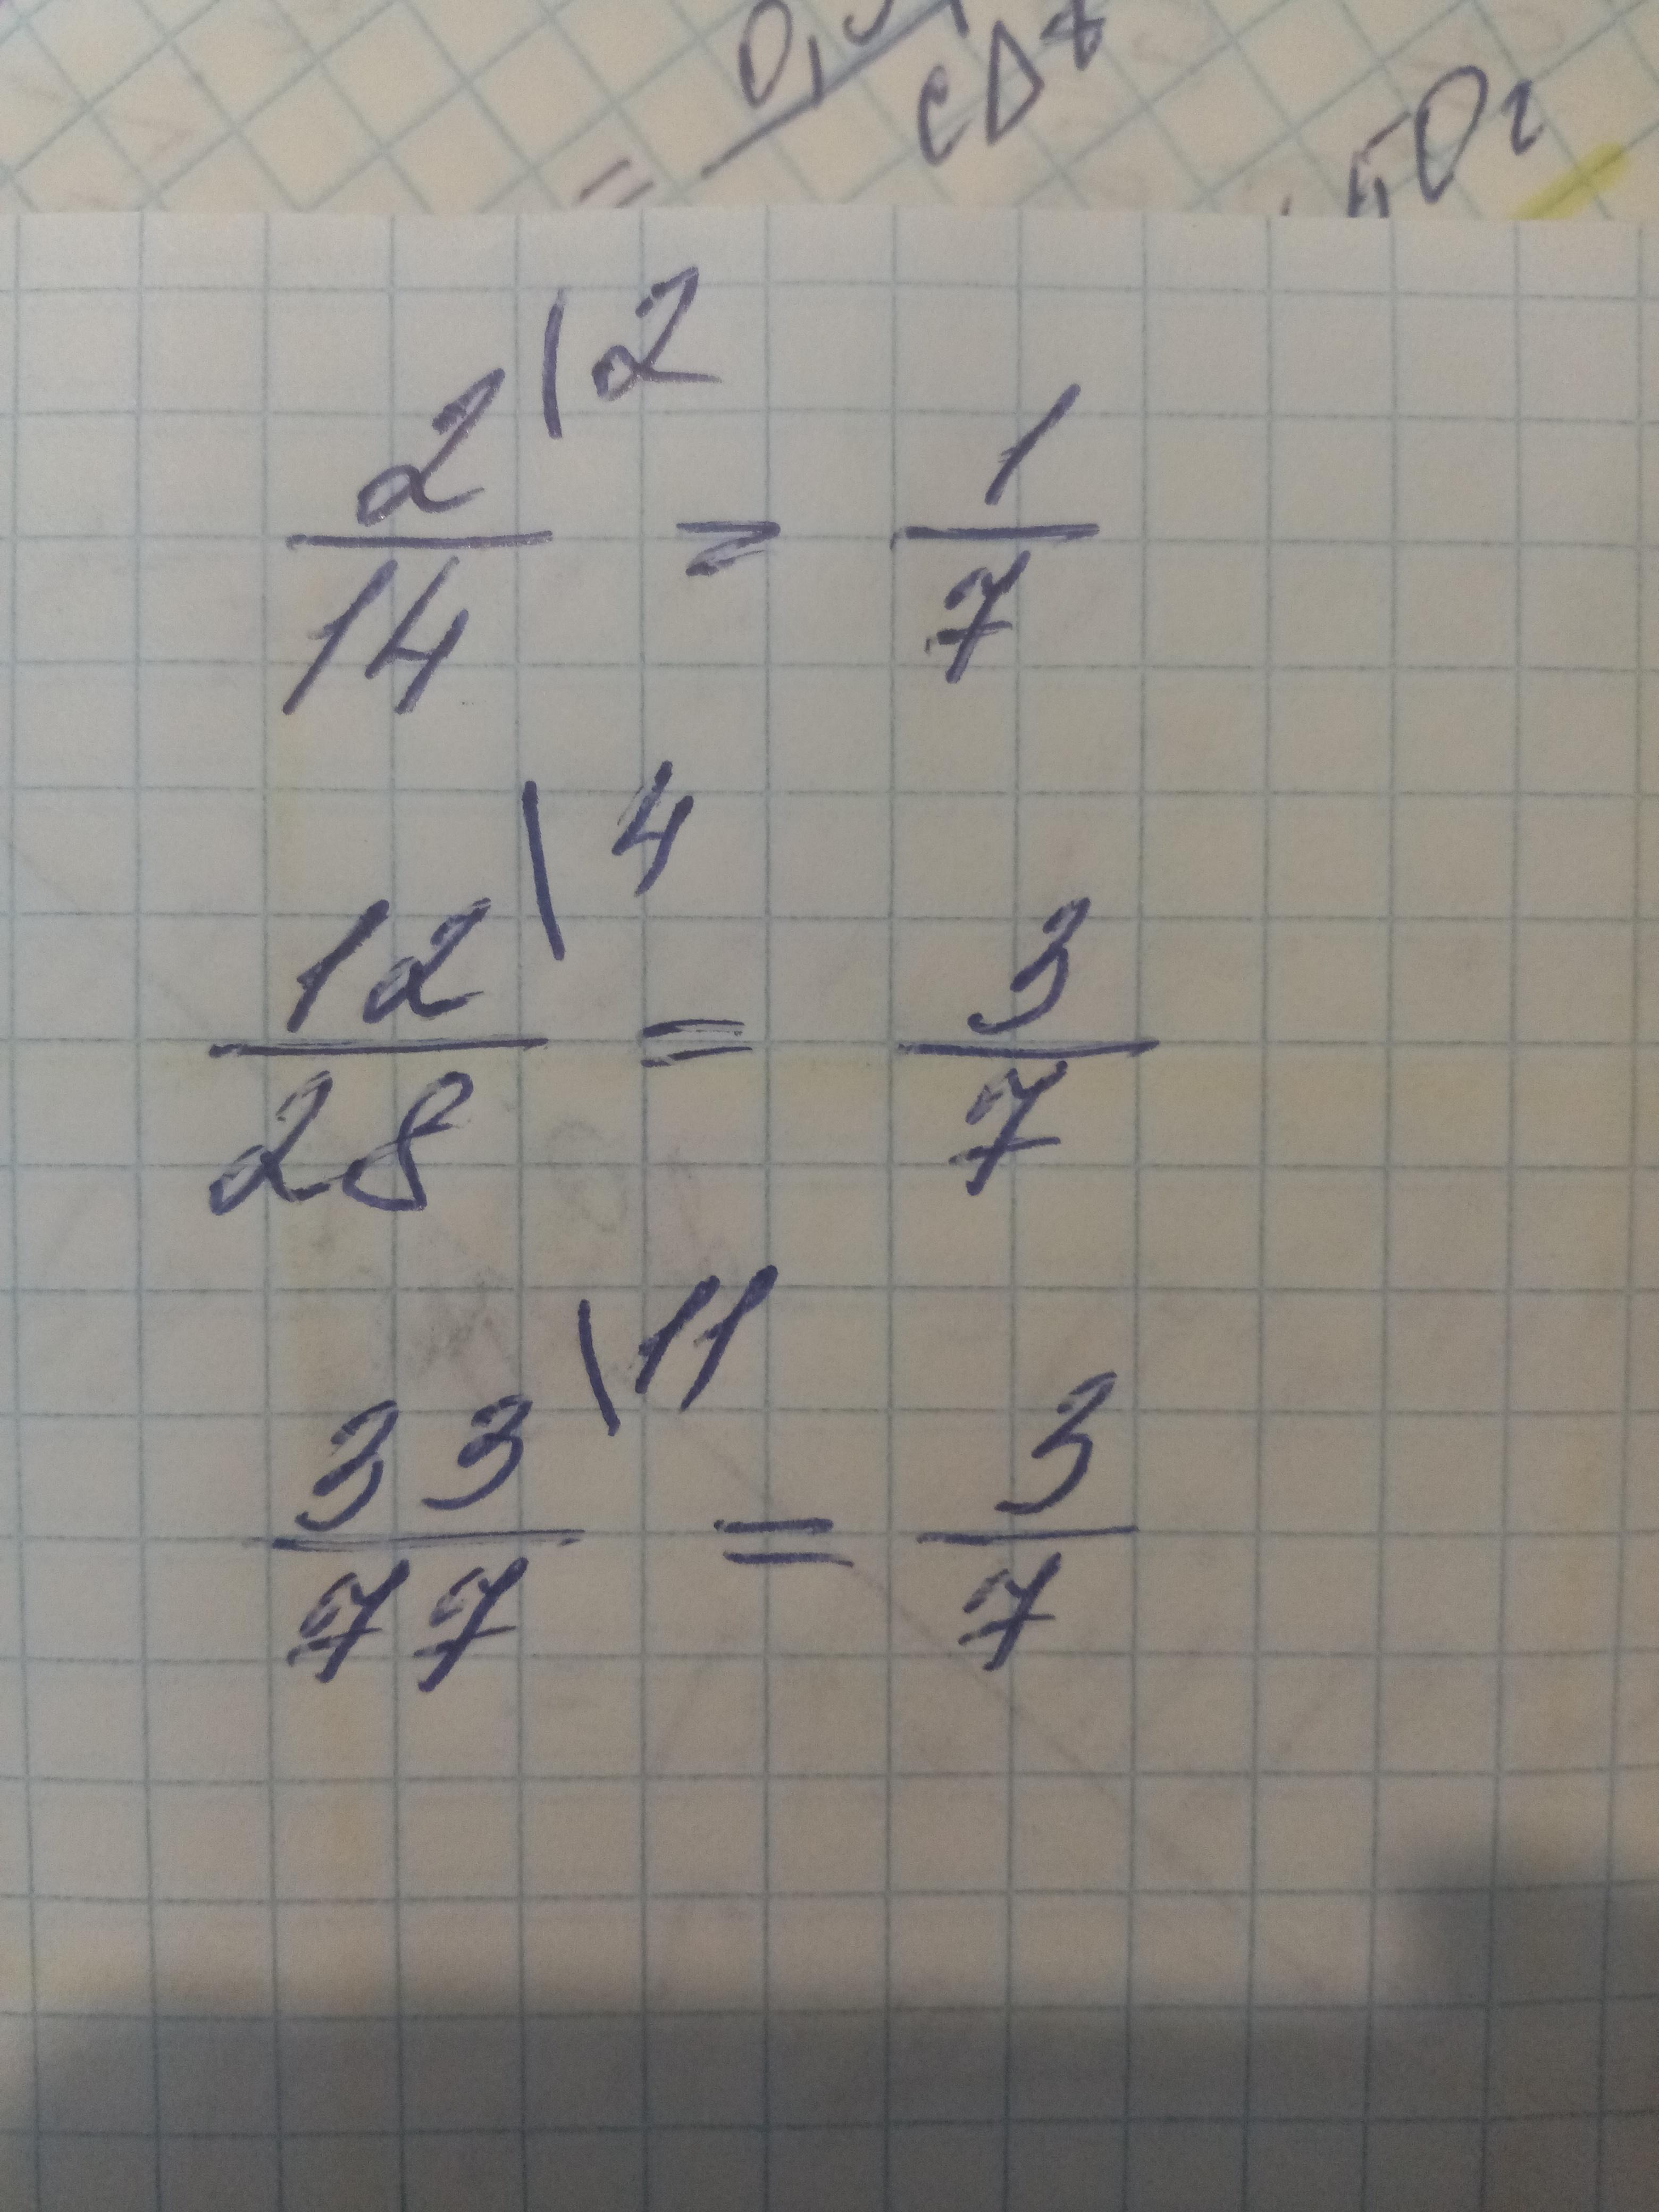 2/14 \2 = 1/7
12/28 \4 = 3/7
33/77 \11 = 3/7